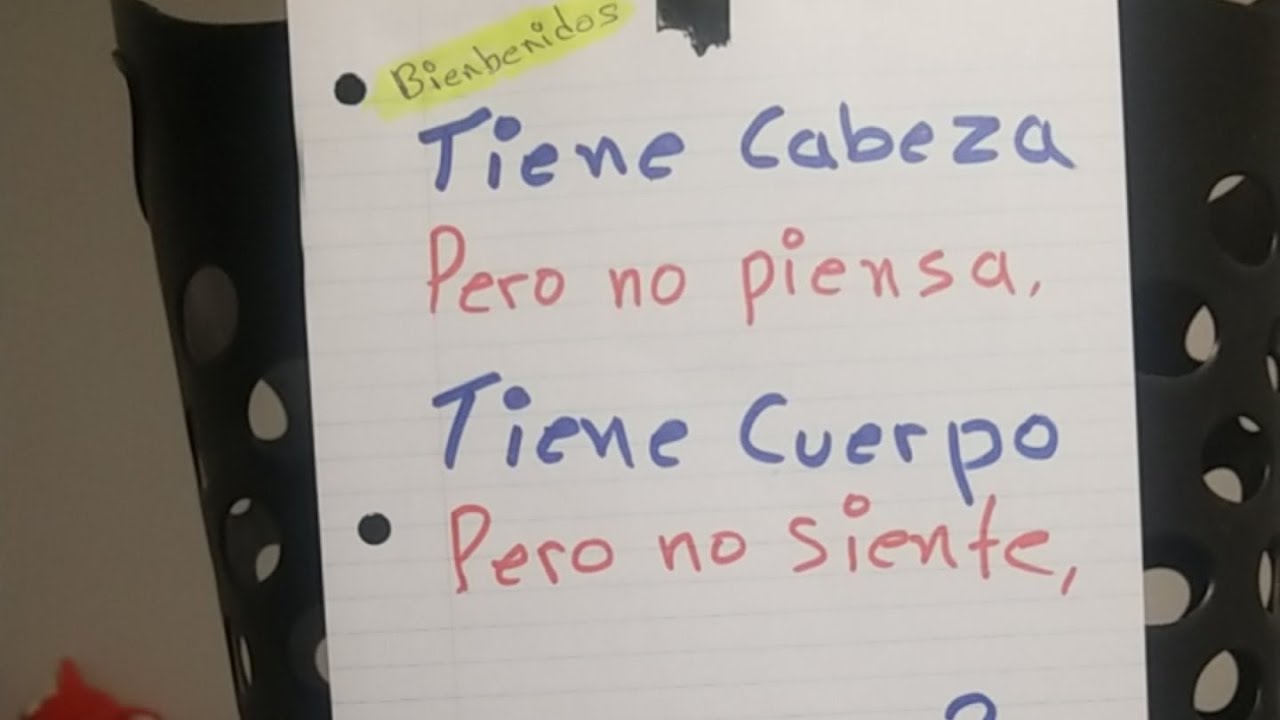 Bienbenidos
Tiene Cabeza
Pero no piensa,
Tiene Cuerpo
Pero no siente,